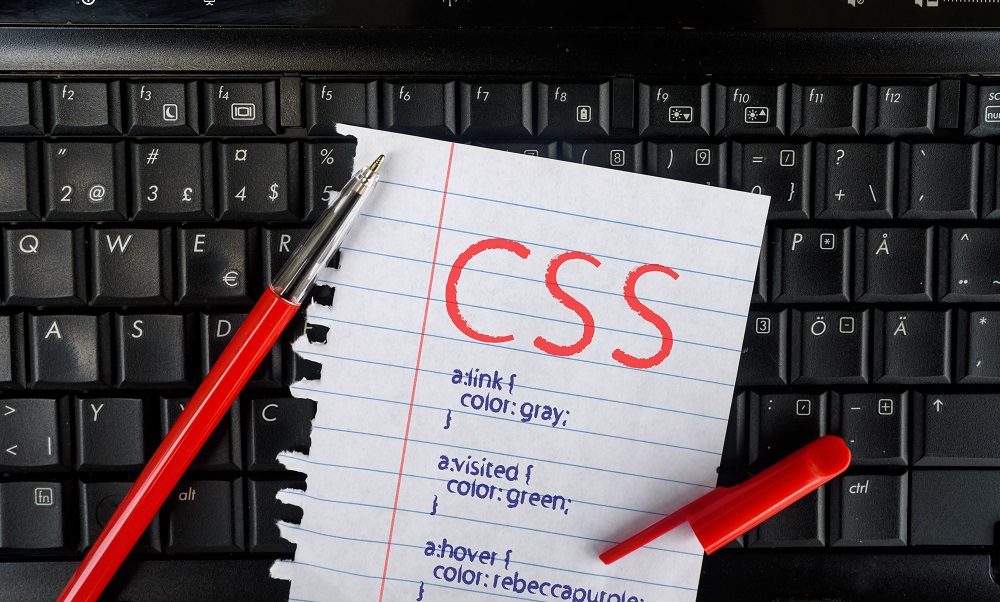 f2 f3 f4 f5 f6 f7 f8 f9 f10 f11 f12 sc
" # ¤ % ( 8 ) 9 = / ? `
2 @ 3 £ 4 $ 5 0 } + \ ´
Q W E R P * Å ^
€ ¨ ~
A S D 3 Ö - Ä *
'
> Y C : / - + ↑
< |
fn alt ctrl
CSS
a:link {
color: gray;
}
a:visited {
color: green;
}
a:hover {
color: rebeccapurple;
}